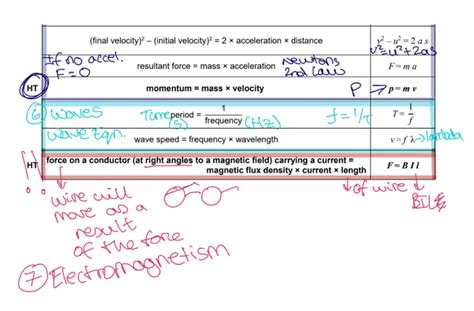 (final velocity)² – (initial velocity)² = 2 × acceleration × distance
v² – u² = 2 a s
v² = u² + 2as
If no accel.
F = 0
resultant force = mass × acceleration
Newtons 2nd Law
F = m a
HT
momentum = mass × velocity
P → p = m v
6 waves
Time period = 1 / frequency
(s)
(Hz)
f = 1/T
T = 1/f
wave eqn.
wave speed = frequency × wavelength
v = f λ → lambda
!!
HT
force on a conductor (at right angles to a magnetic field) carrying a current =
magnetic flux density × current × length
F = B I l
↓ of wire
BIL
wire will
move as a
result
of the force
7 Electromagnetism